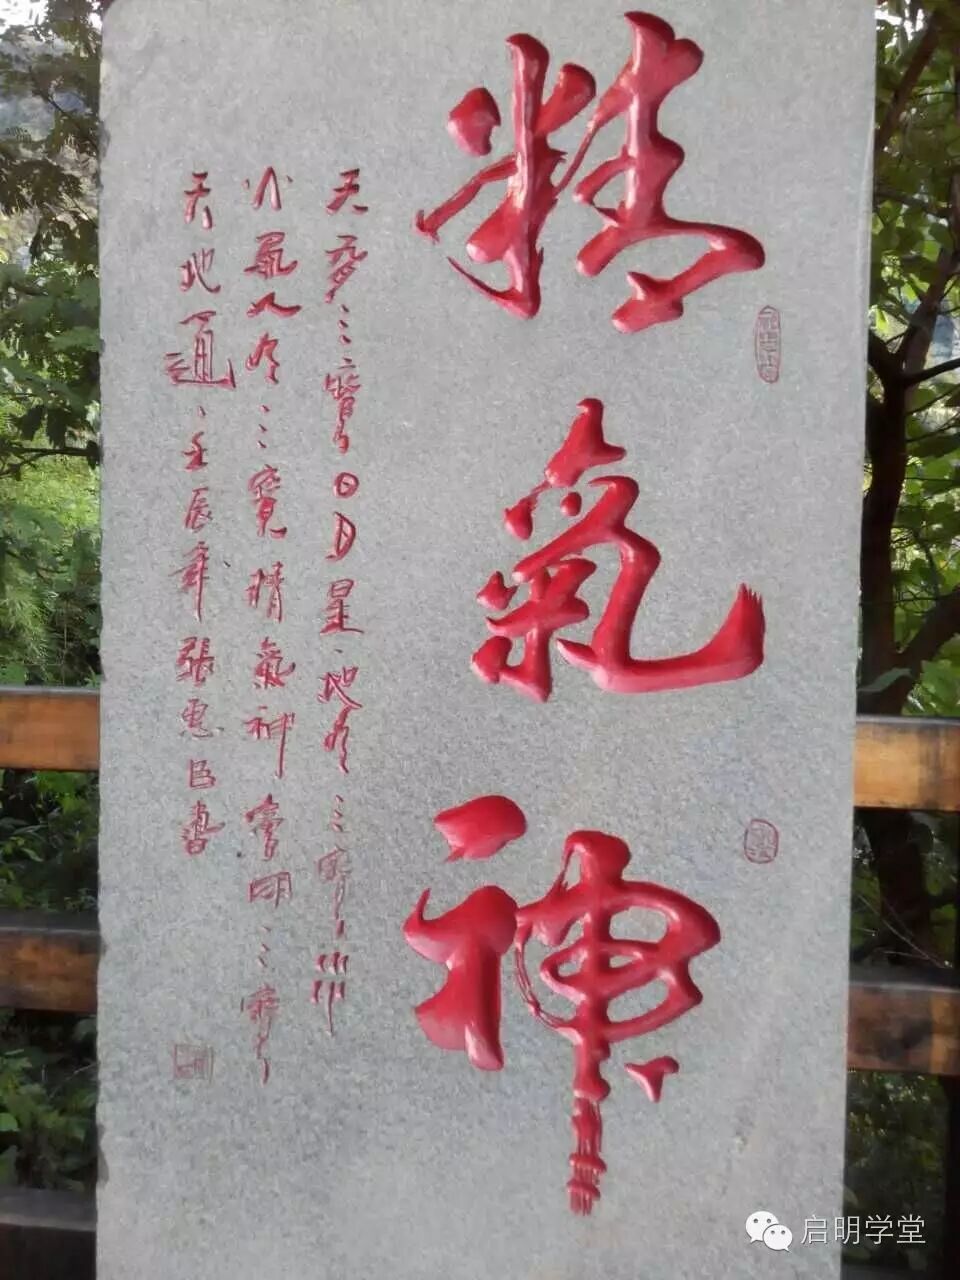 精氣神
天有三寶日月星地有三寶水
火風人有三寶精氣神會用三寶
天地通壬辰年張惠臣書
启明学堂